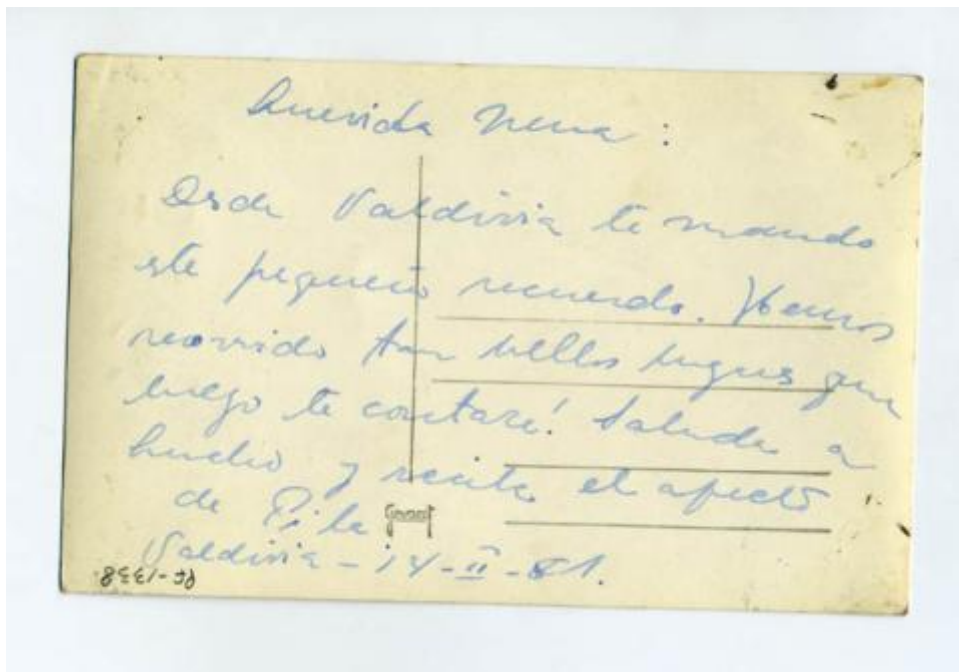 Querida Nena:
Desde Valdivia te mando
este pequeño recuerdo. Hemos
recorrido tan bellos lugares que
luego te contaré! Saluda a
y recibe el afecto
de
Valdivia - 14-II-81.
PF-1338